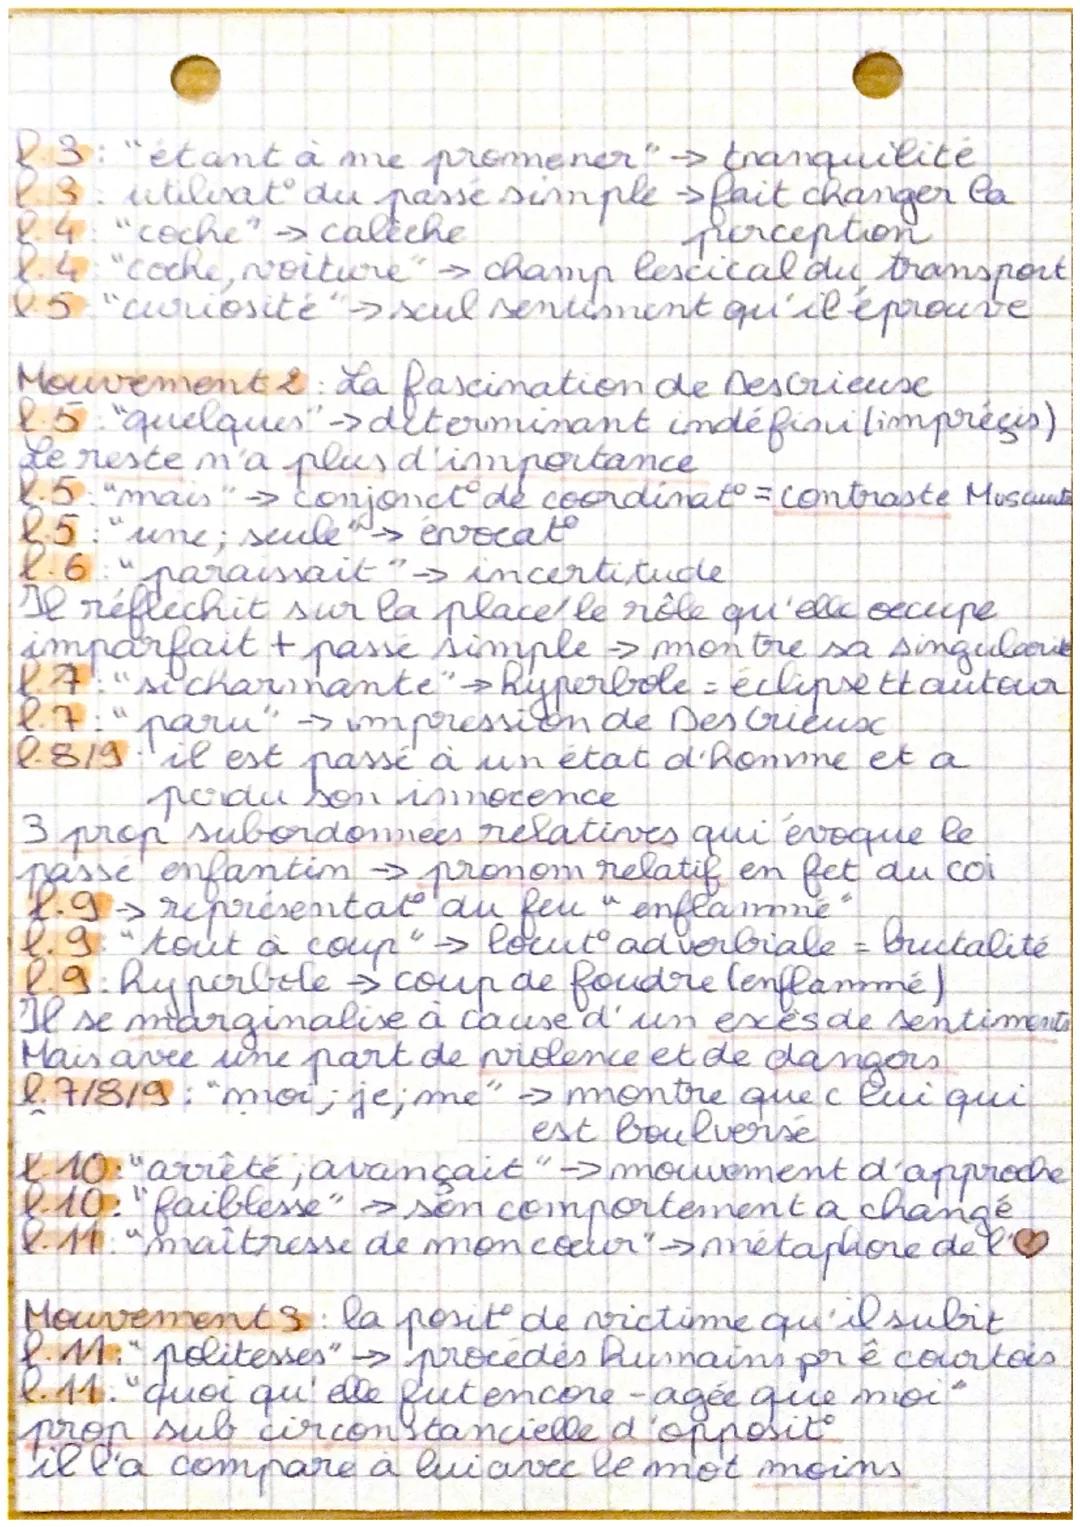 l.3 : "étant à me promener" → tranquilité
l.3 : utilisat° du passé simple → fait changer la
perception
l.4 : "coche" → calèche
l.4 : "coche, voiture" → champ lexical du transport
l.5 "curiosité" → seul sentiment qu'il éprouve
Mouvement 2 : La fascination de Des Grieux
l.5 : "quelques" → déterminant indéfini (imprécis)
Le reste n'a plus d'importance
l.5 : "mais" → conjonct° de coordinat° = contraste
l.5 : "une ; seule" → évocat°
l.6 : "paraissait" → incertitude
Il réfléchit sur la place/le rôle qu'elle occupe
imparfait + passé simple → montre sa singularité
l.7 : "si charmante" → hyperbole = éclipse tt autour
l.7 : "paru" → impression de Des Grieux
l.8/9 : il est passé à un état d'homme et a
perdu son innocence
3 prop subordonnées relatives qui évoque le
passé enfantin → pronom relatif en fct du coi
l.9 → représentat° du feu "enflammé"
l.9 : "tout à coup" → locut° adverbiale = brutalité
l.9 : hyperbole → coup de foudre (enflammé)
Il se marginalise à cause d'un excès de sentiments
Mais avec une part de violence et de dangers
l.7/8/9 : "moi ; je ; me" → montre que c lui qui
est boulversé
l.10 : "arrêté ; avançait" → mouvement d'approche
l.10 : "faiblesse" → son comportement a changé
l.11 : "maîtresse de mon cœur" → métaphore de l'♥
Mouvement 3 : la posit° de victime qu'il subit
l.11 : "politesses" → procédés humains pr ê courtois
l.11 : "quoi qu'elle fut encore - agée que moi"
prop sub circonstancielle d'opposit°
il l'a compare à lui avec le mot moins